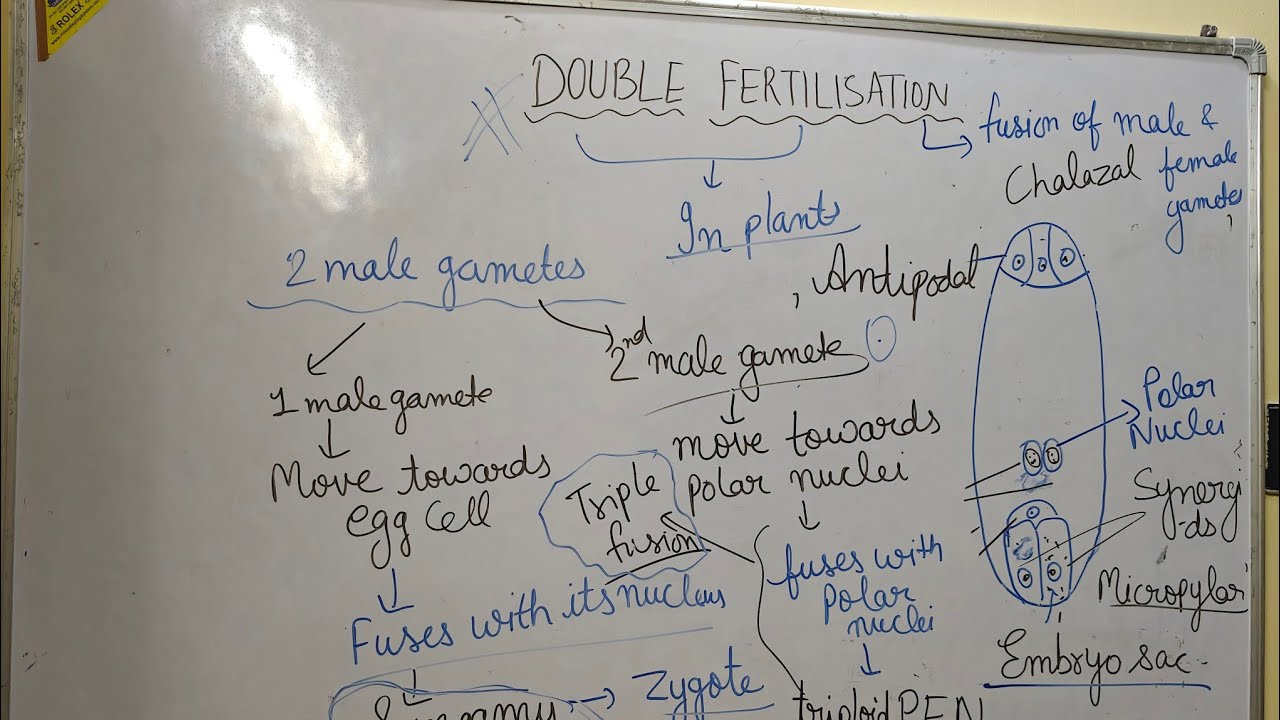 ROLEX
DOUBLE FERTILISATION
fusion of male &
female
gametes
In plants
2 male gametes
1 male gamete
Move towards
egg cell
Fuses with its nucleus
Zygote
2nd male gamete
move towards
polar nuclei
fuses with
polar
nuclei
triploid PEN
Triple
fusion
Chalazal
Antipodal
Polar
Nuclei
Synergi
-ds
Micropylar
Embryo sac